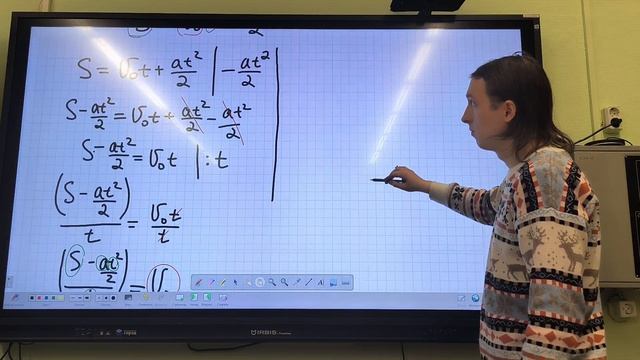 S = υ₀t + at²/2 | − at²/2
S − at²/2 = υ₀t + at²/2 − at²/2
S − at²/2 = υ₀t | : t
(S − at²/2)/t = υ₀t/t
(S − at²/2) = υ₀
IRBIS